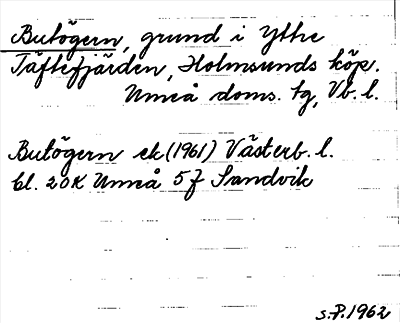 Butögern, grund i Ythe
Täftefjärden, Holmsunds köp.
Umeå doms. tg, Vb. l.
Butögern ek (1961) Västerb. l.
bl. 20K Umeå 5f Sandvik
S.P. 1962